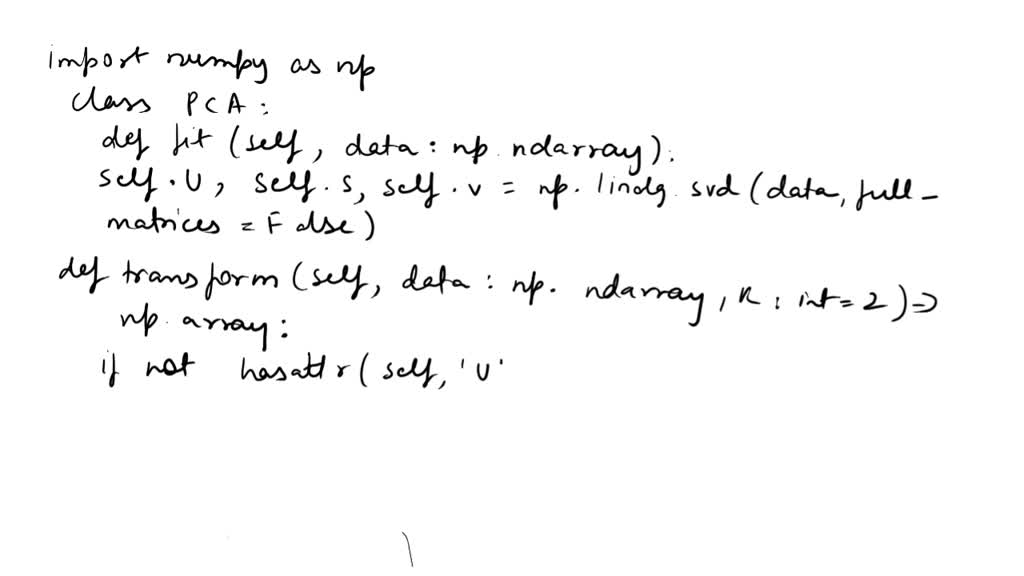 import numpy as np
class PCA:
def fit (self, data: np. ndarray):
self.U, self.s, self.v = np. linalg. svd (data, full_
matrices = False)
def transform (self, data: np. ndarray, K: int = 2) ->
np. array:
if not hasattr( self, 'U'